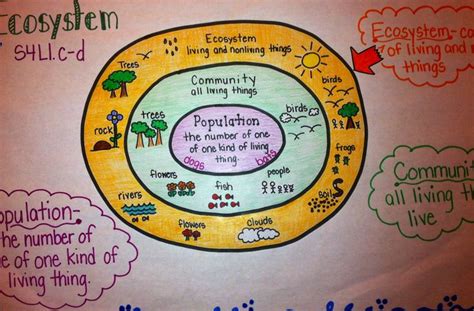 cosystem
S4L1.c-d
Ecosystem
living and nonliving things
Trees
birds
rock
frogs
soil
rivers
flowers
clouds
Community
all living things
trees
birds
flowers
fish
people
Population
the number of one
of one kind of living
thing.
dogs
Ecosystem- co
of living and
things
Communit
all living th
live
opulation-
the number of
e of one kind of
living thing.